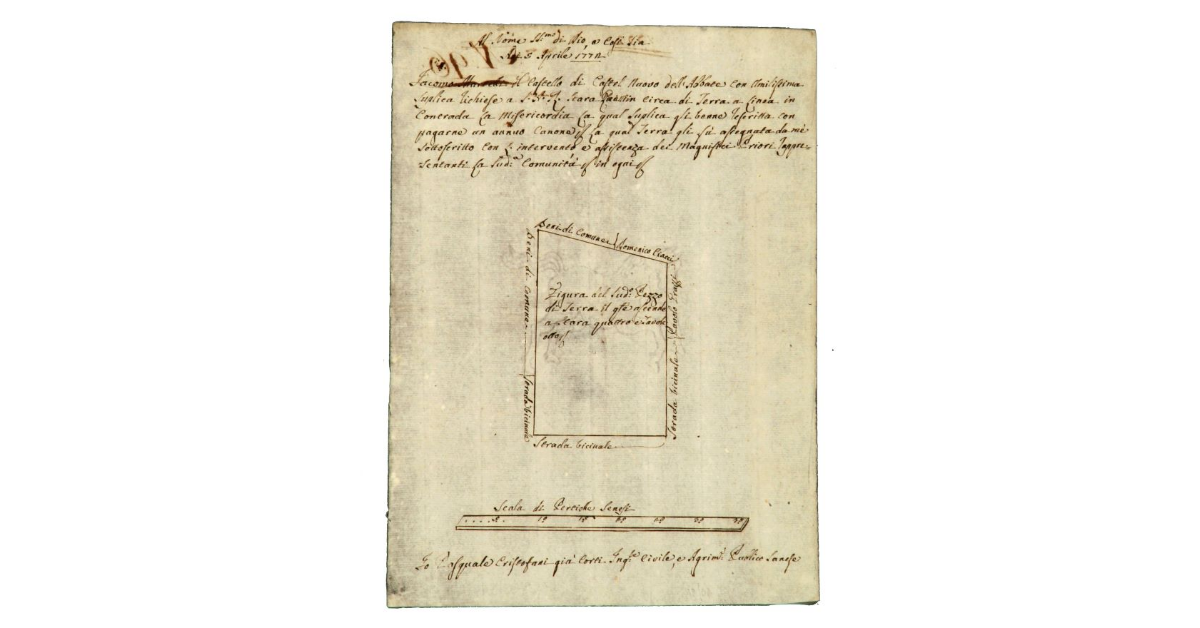 Al Nome SS.mo di Dio, e Così Sia
A dì Aprile 1772
Giacomo il Castello di Castel Nuovo dell'Abbate con Umilissima
Suplica richiese a S.A.R. Stara circa di Terra a Linea in
Contrada La Misericordia La qual Suplica gli venne rescritta con
pagarne un annuo Canone La qual Terra gli fù assegnata da mè
Sottoscritto con L'intervento e assistenza dei Magnifici Priori Rappre-
sentanti La Sud.a Comunità in ogni
Beni di Comune
Domenico Ciacci
Beni di Comune
Figura del Sud.o Pezzo
di Terra il q.le ascende
a Stara quattro e
otto
Strada Vicinale
Strada Vicinale
Strada Vicinale
Scala di Pertiche Senesi
Io Pasquale Cristofani già Corti Ing.re Civile, e Agrim.re Publico Sanese